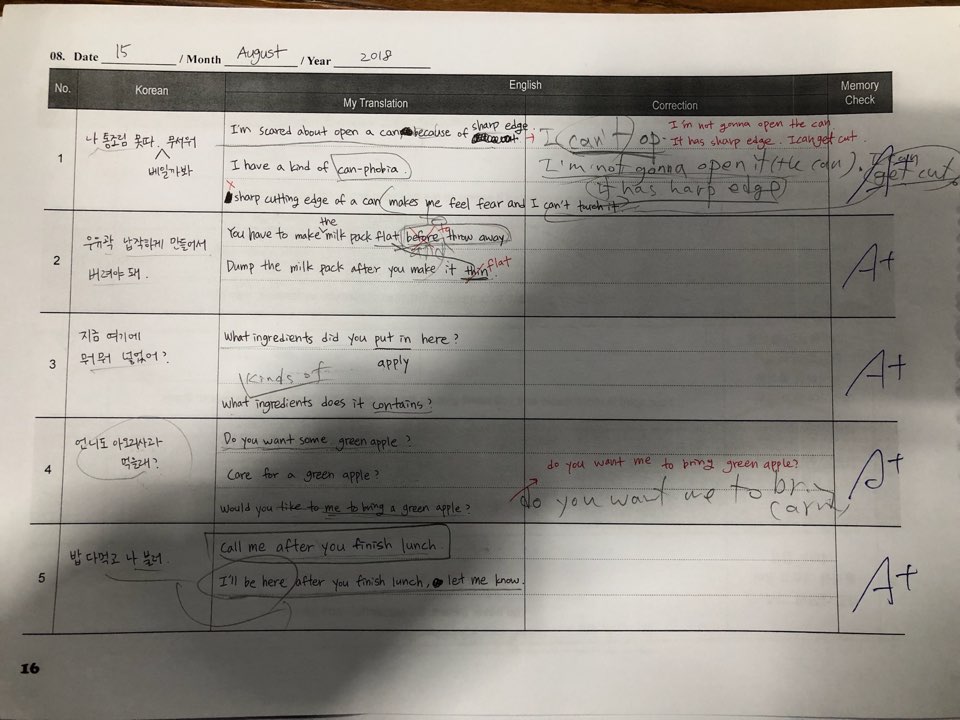 08. Date 15 / Month August / Year 2018
No. Korean English Memory Check
My Translation Correction
1
나 통조림 못따. 무서워
베일까봐
I'm scared about open a can because of sharp edge
I have a kind of can-phobia.
sharp cutting edge of a can makes me feel fear and I can't touch it.
I'm not gonna open the can
It has sharp edge. I can get cut.
I can't op
I'm not gonna open it (the can). I can get cut.
It has harp edge
2
우유곽 납작하게 만들어서
버려야 돼.
You have to make the milk pack flat before throw away.
to
and
Dump the milk pack after you make it thin. flat
A+
3
지금 여기에
뭐뭐 넣었어?
What ingredients did you put in here?
apply
Kinds of
What ingredients does it contains?
A+
4
언니도 아오리사과
먹을래?
Do you want some green apple?
Care for a green apple?
Would you like to me to bring a green apple?
do you want me to bring green apple?
do you want me to brin
carry
A+
5
밥 다먹고 나 불러.
Call me after you finish lunch.
I'll be here after you finish lunch, let me know.
A+
16